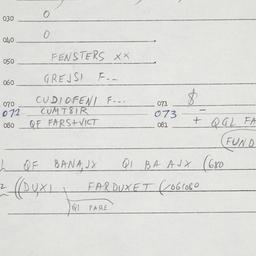 030 0
040 0
050 FENSTERS XX
060 GREJSI F--
070 CUDIOFENI F--- 071 8
072 CUMTSIR 073 -
080 QF FARS+VICT 081 + QGL FA
(FUND
QF BANAJX QI BA AJX (6X0
2 ((DUX1 FARDUXET
QI FARE